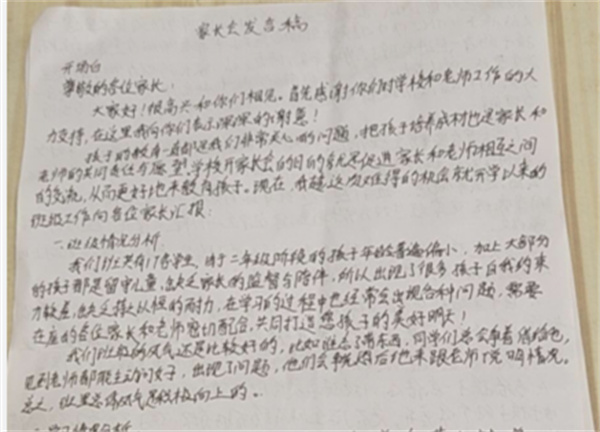 家长会发言稿
开场白
尊敬的各位家长:
大家好!很高兴和你们相见。首先感谢你们对学校和老师工作的大
力支持,在这里我向你们表示深深的谢意!
孩子的教育一直都是我们非常关心的问题,把孩子培养成材也是家长和
老师的共同责任与愿望。学校开家长会的目的就是促进家长和老师相互之间
的交流,从而更好地来教育孩子。现在,我趁这次难得的机会就开学以来的
班级工作向各位家长汇报:
一.班级情况分析.
我们班共有17名学生,对于二年级阶段的孩子年龄普遍偏小,加上大部分
的孩子都是留守儿童,缺乏家长的监督与陪伴,所以出现了很多孩子自我约束
力较差,缺乏持之以恒的耐力,在学习的过程中也经常会出现各种问题,需要
在座的各位家长和老师密切配合,共同打造您孩子的美好明天!
我们班级的风气还是比较好的,比如谁忘了带东西,同学们总会争着借给他,
见到老师都能主动问好,出现了问题,他们会争先恐后地来跟老师说明情况。
总之,班里总体风气是积极向上的。